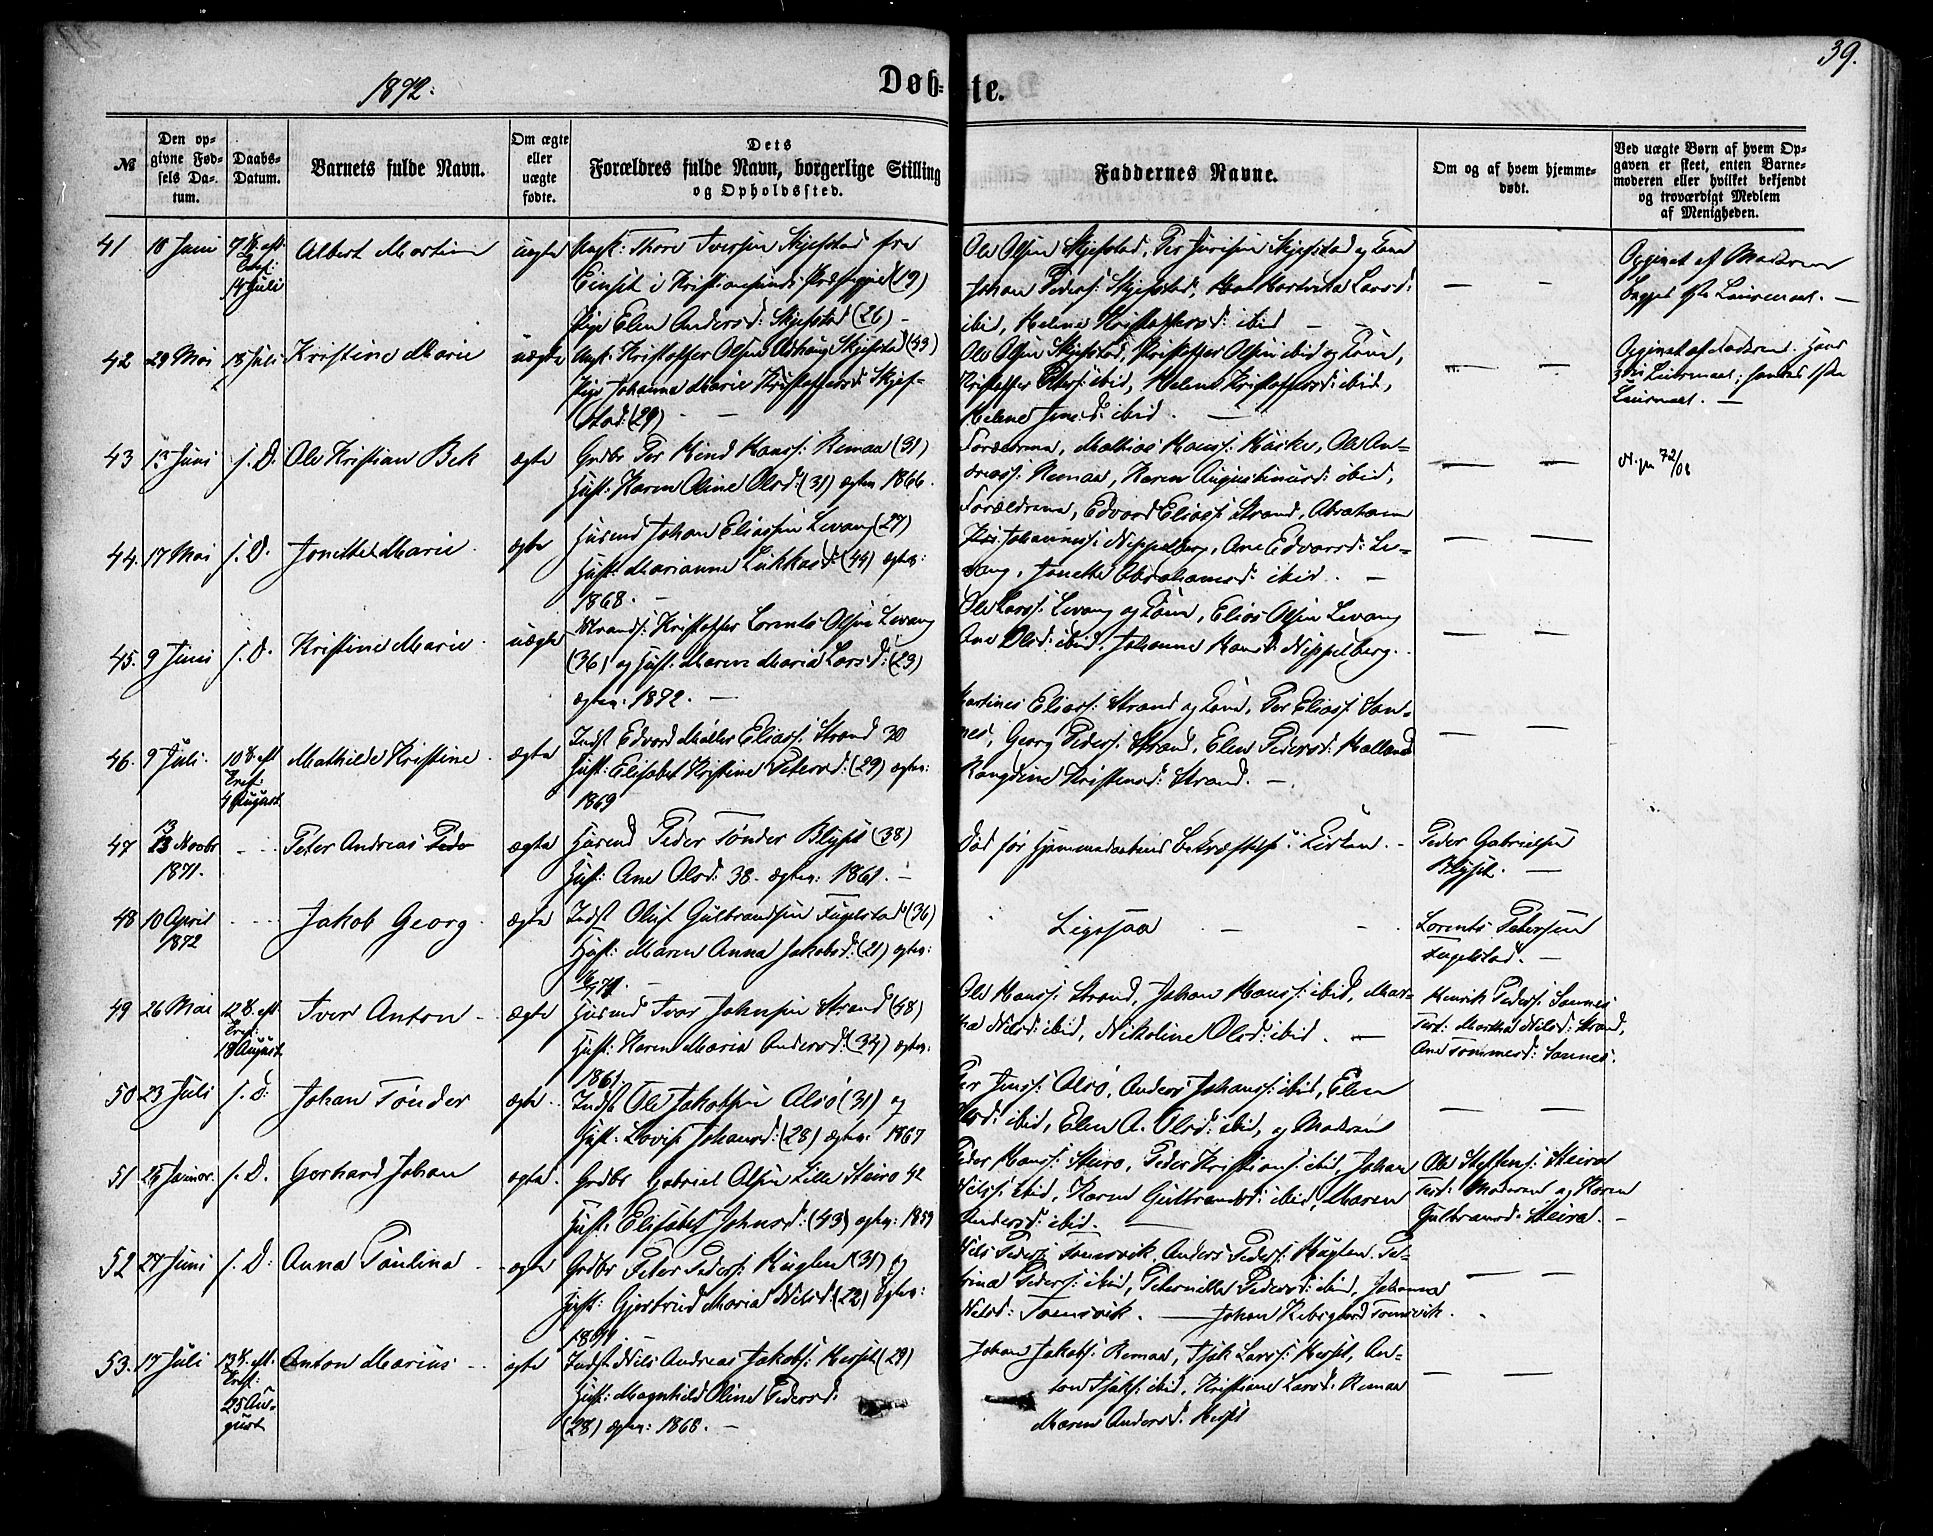 39.
1872.
Døb- te.
№
Den opgivne Fødsels Datum.
Daabs-Datum.
Barnets fulde Navn.
Om ægte eller uægte fødte.
Dets Forældres fulde Navn, borgerlige Stilling og Opholdssted.
Faddernes Navne.
Om og af hvem hjemmedøbt.
Ved uægte Børn af hvem Opgaven er skeet, enten Barnemoderen eller hvilket bekjendt og troværdigt Medlem af Menigheden.
41 18 Juni
14 Juli
Albert Martin
uægte
Ungk: Thore Iversen Skjefstad fra
i Kristiansunds Præstegjeld (19)
Pige Elen Andersd: Skjefstad (26) -
Ole Olsen Skjefstad, Per Skjefstad og Kone
Johan Peders: Skjefstad, Larsd:
ibid, Helene Kristoffersd: ibid
Opgivet af Moderen
Begges 1ste Leiermaal. —
42 29 Mai 18 Juli Kristine Marie
uægte
Kristoffer Olsen Skjefstad (43)
Pige Johanna Marie Kristoffersd: Skjef-
stad (29)
Ole Olsen Skjefstad, Kristoffer Olsen ibid og Kone,
Kristoffer Peders: ibid, Helene Kristoffersd: ibid,
Helene Jensd: ibid.
Opgivet af Moderen. Hans
Leiermaal, hendes 1ste
Leiermaal. —
43 13 Juni s. D. Ole Kristian Bek
ægte
Grdbr Per Kind Hanss: Remaa (31)
Hust: Karen Oline Olsd: (31) ægtev 1866.
Forældrene, Mathias Hanss: Ole An-
dreass: Remaa, Karen Augustinusd: ibid,
72/08
44. 17 Mai s. D. Jonette Marie.
ægte
Husmd Johan Eliassen Levang (27)
Hust: Marianne Lukkasd: (44) ægtev:
1868. —
Forældrene, Edvard Eliass: Strand, Abraham
Johanness: Nippelberg, Ane Edvardsd: Le-
vang, Jonette Abrahamsd: ibid. —
45. 9 Juni s. D. Kristine Marie.
uægte
Strands: Kristoffer Lorents Olsen Levang
(36) og Hust. Maren Maria Larsd: (23)
ægtev: 1872. —
Ole Larss: Levang og Kone, Elias Olsen Levang
Ane Olsd: ibid, Johanne Hansd: Nippelberg.
46. 9 Juli. 10 S. eft Tref. 4 August
Mathilde Kristine.
ægte
Indst Edvard Møller Eliass: Strand 30
Hust: Elisabet Kristine Petersd: (29) ægtev:
1869
Martines Eliass: Strand og Kone, Per Eliass: San-
nes, Georg Peders: Strand, Elen Pedersd: Halland
Kristensd: Strand. —
47 13 Novbr 1871.
Peter Andreas
ægte
Husmd Peder Tønder Blyset (38)
Hust: Ane Olsd: 38. ægtev: 1861. —
Død før Hjemmedaabens Bekræftelse i Kirken. -
Peder Gabrielsen
Blyset. —
48 10 April 1872
Jakob Georg.
ægte
Indst Oluf Gulbrandsen Fugelstad (36)
Hust: Maren Anna Jakobsd: (21) ægtev:
Ligesaa
Lorents Petersen
Fugelstad. —
49 26 Mai 12 S. eft Tref: 18 August
Iver Anton -
ægte
Husmd Ivar Johnsen Strand (48)
Hust: Karen Maria Andersd: (34) ægtev:
1861
Ole Hanss: Strand, Johan Hanss: ibid, Mar-
tha Nilsd: ibid, Nikoline Olsd: ibid. —
Henrik Peders: Sannes
Test: Martha Nilsd: Strand,
Ane Tommesd: Sannes.
50 23 Juli s. D: Johan Tønder
ægte.
Indst Ole Jakobsen Alsø (31) og
Hust: Lovise Johansd: (28) ægtev: 1867
Per Jenss: Alsø, Anders Johanss: ibid, Elen
Olsd: ibid, Elen A. Olsd: ibid, og Moderen
51 25 Januar. s. D. Gerhard Johan
ægte.
Grdbr Gabriel Olsen Lille Steiro 42
Hust: Elisabet Johnsd: (43) ægtev: 1859
Peder Hanss: Steiro, Peder Kristians: ibid, Johan
Nilss: ibid, Karen Gulbrandsd: ibid, Maren
Andersd: ibid. —
Ole Steffens: Steira
Test: Moderen og Karen
Gulbransd: Steira. —
52 27 Juni s. D: Anna Paulina
ægte
Grdbr Peter Peders: Kuglen (31) og
Hust: Gjertrud Maria Nilsd: (22) ægtev:
Nils Peders: Tomrvik, Anders Peders: Kuglen, Pe-
trina Pedersd: ibid, Peternilla Pedersd: ibid, Johanna
Nilsd: Tomrvik. — Johan Tomrvik.
53. 17 Juli 13 S. eft: Tref: 25 August
Anton Marius
ægte
Indst Nils Andreas Jakobs: Kusset (29)
Hust: Magnhild Oline Pedersd:
(28) ægtev: 1868. —
Johan Jakobs: Remaa, Isak Larss: Kusset, An-
ton Isaks: ibid, Kristiane Larsd: Remaa
Maren Andersd: Kusset